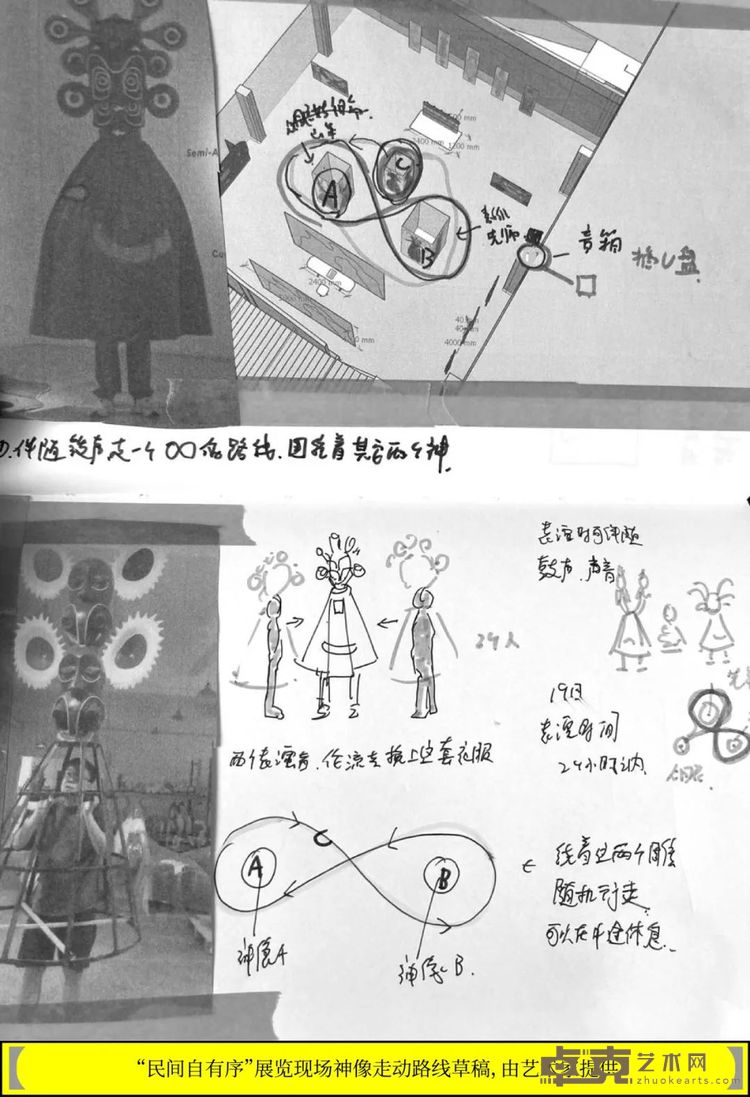 Semi-A
A
C
B
音箱
插U盘
2400 mm
1200 mm
2400 mm
4000 mm
伴随鼓声走一个∞的路线.围绕着其它两个神
表演时可伴随
鼓声.声音
两个表演者.轮流去换上这套衣服
19日
表演时间
24小时内
A
C
B
神像A
神像B.
绕着这两个雕像
随机行走
可以在中途休息
“民间自有序”展览现场神像走动路线草稿, 由艺术家提供
卓克艺术网
zhuokearts.com